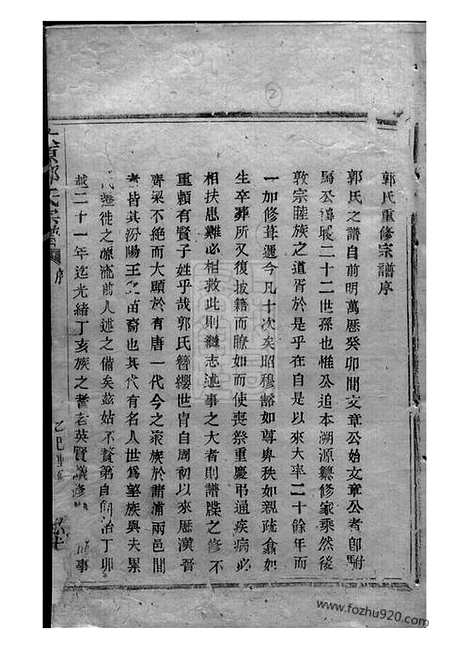 郭氏重修宗譜序
郭氏之譜自前明萬厯癸卯間文章公始文章公者卽駙
馬公 二十二世孫也惟公追本溯源纂修家乘然後
敦宗睦族之道胥於是乎在自是以來大率二十餘年而
一加修葺邇今凡十次矣昭穆豁如尊卑秩如親疏翕如
生卒葬所又復按籍而瞭如而使喪祭重慶弔通疾病必
相扶患難必相救此則繼志述事之大者則譜牒之修不
重賴有賢子姓乎哉郭氏簪纓世胄自周初以來厯漢晉
齊梁不絶而大顯於有唐一代今之聚族於諸浦兩邑間
者皆其汾陽王之苗裔也其代有名人世爲望族與夫累
代遷徙之源流前人述之備矣茲姑不贅第自同治丁卯
越二十一年迄光緒丁亥族之耆老英賢議修 事
郭氏宗譜 序
www.fozhu920.com